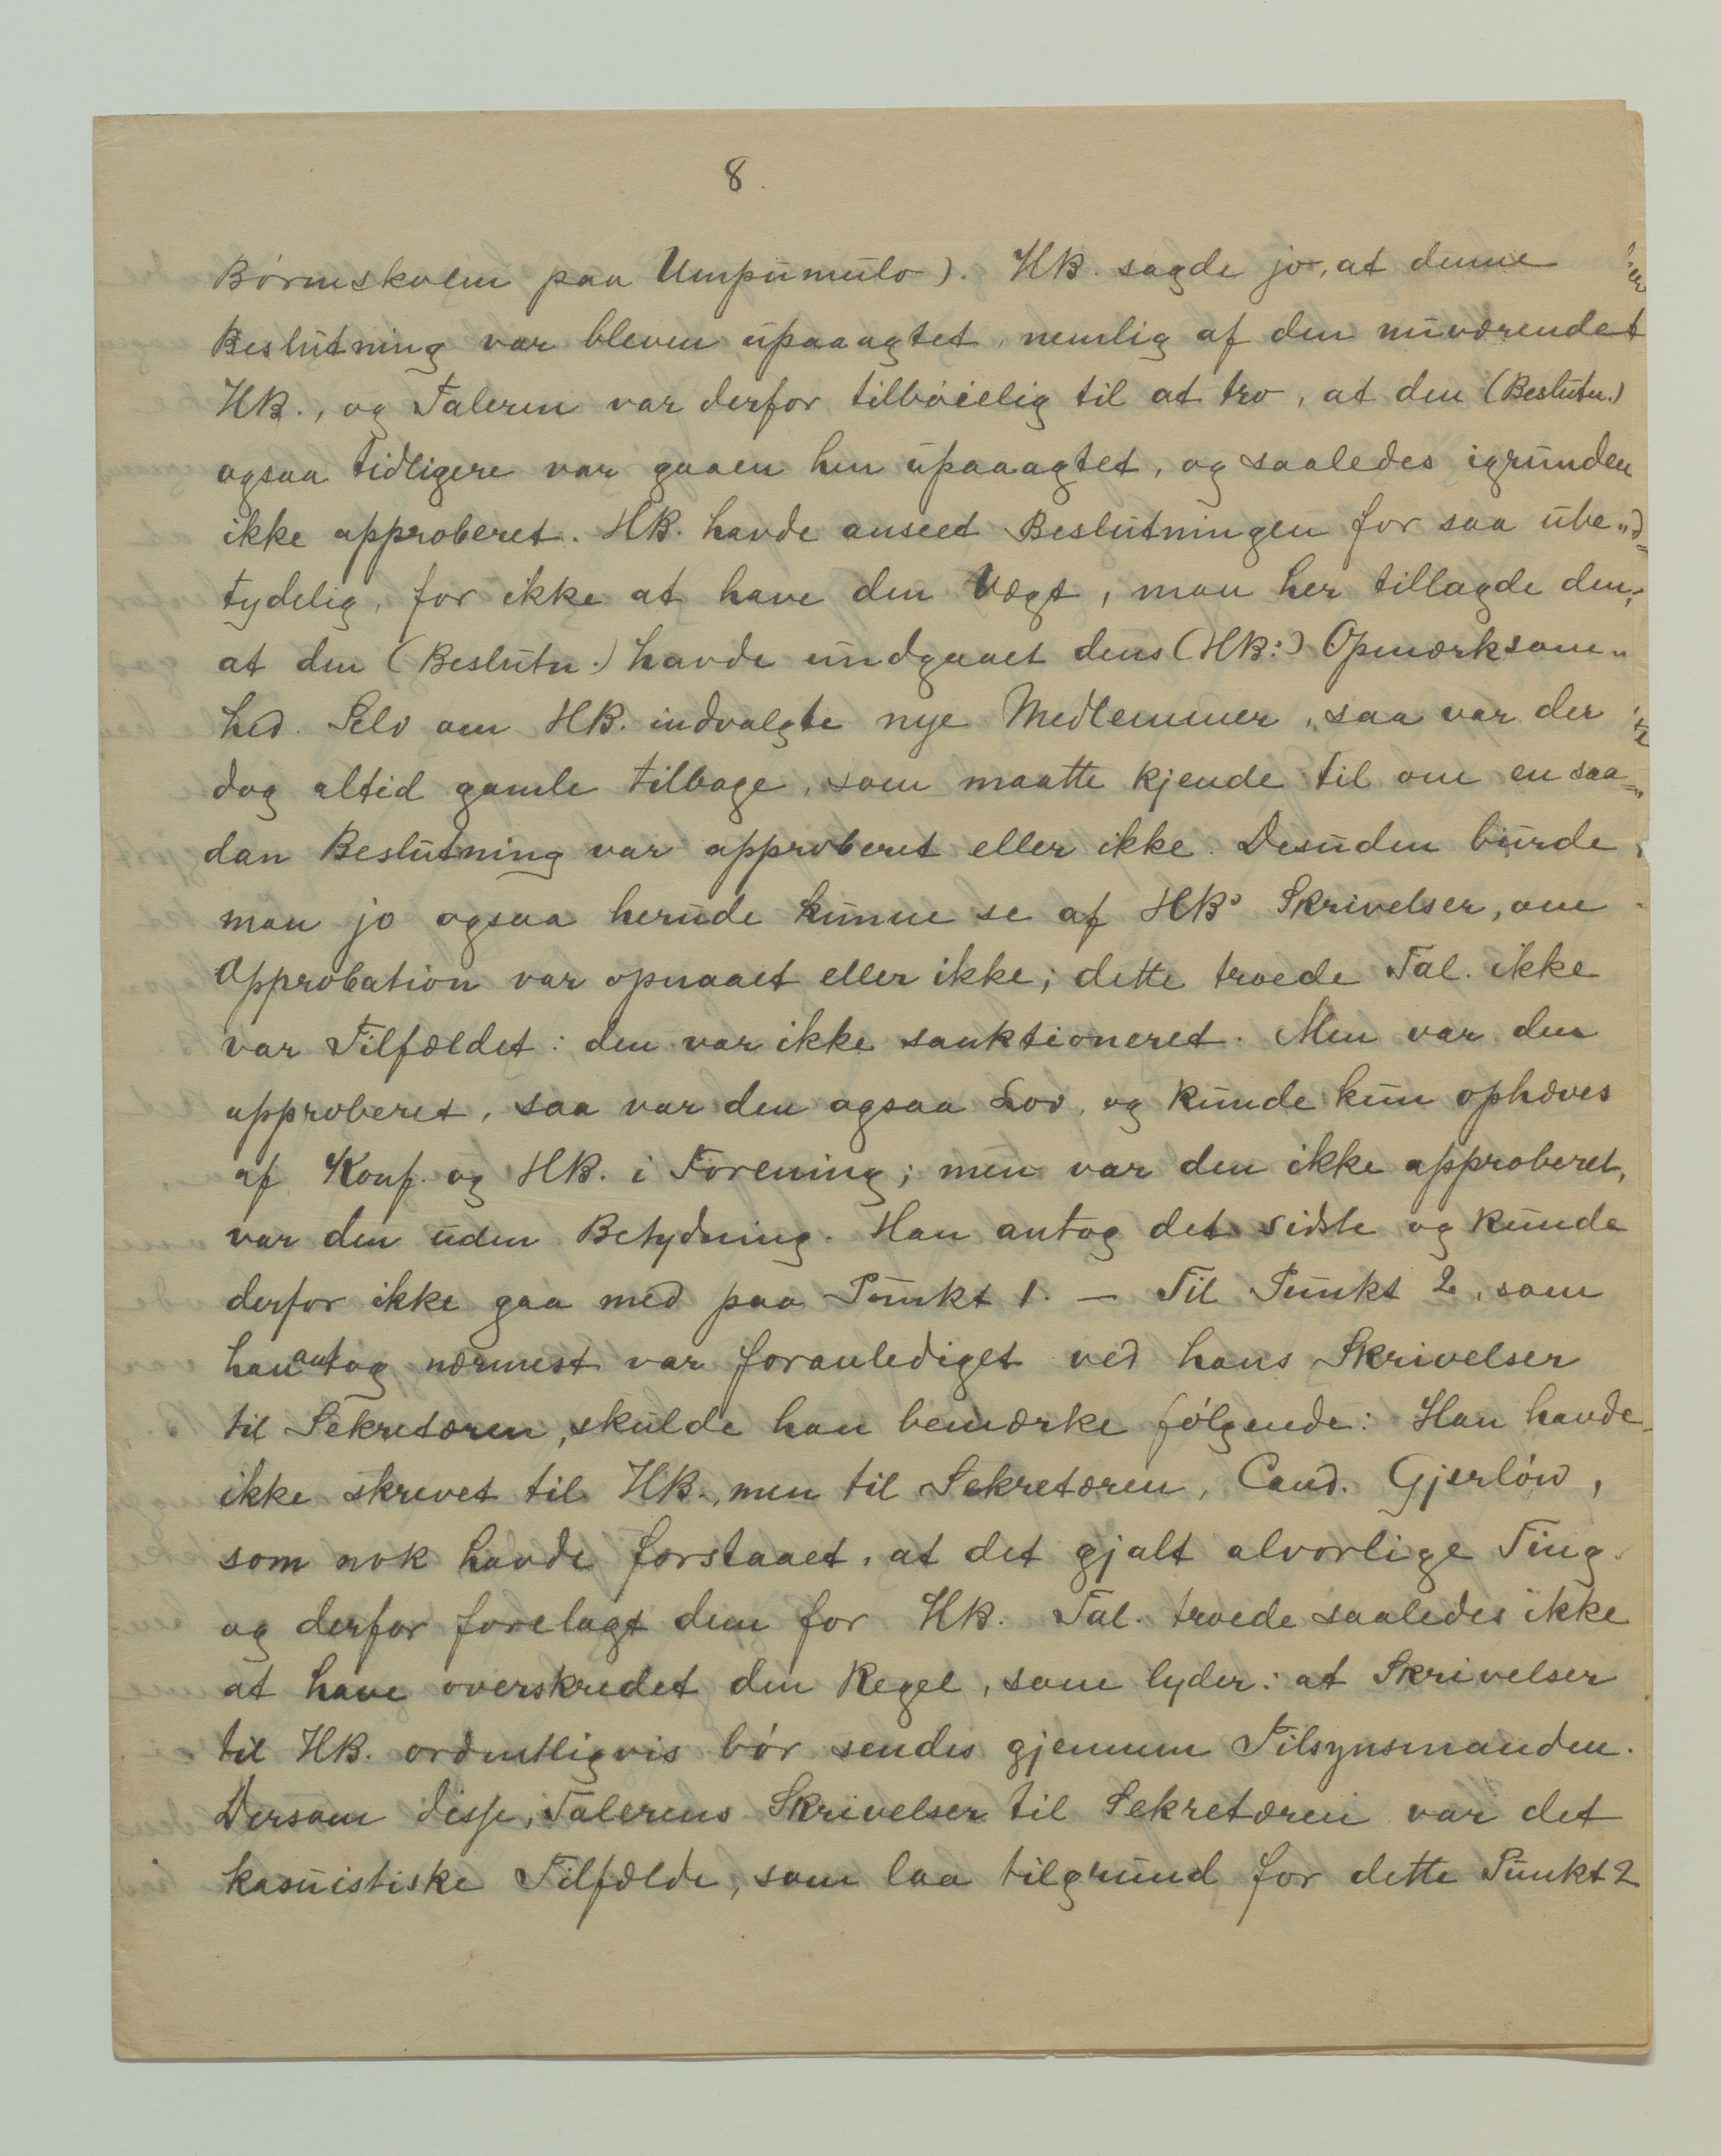 8.
Børneskolen paa Umpumulo). HB. sagde jo, at denne
Beslutning var bleven upaaagtet, nemlig af den nuværendet
HB., og Taleren var derfor tilbøielig til at tro, at den (Beslutn.)
ogsaa tidligere var gaaen hen upaaagtet, og saaledes igrunden
ikke approberet. HB. havde anseet Beslutningen for saa ube„
tydelig, for ikke at have den Vægt, man her tillagde den;
at den (Beslutn.) havde undgaaet dens (HB:) Opmærksom„
hed. Selv om HB. indvalgte nye Medlemmer, saa var der
dog altid gamle tilbage, som maatte kjende til om en saa„
dan Beslutning var approberet eller ikke. Desuden burde
man jo ogsaa herude kunne se af HBs Skrivelser, om
Approbation var opnaaet eller ikke; dette troede Tal. ikke
var Tilfældet: den var ikke sanktioneret. Men var den
approberet, saa var den ogsaa Lov, og kunde kun ophæves
af Konf. og HB. i Forening; men var den ikke approberet,
var den uden Betydning. Han antog det sidste og kunde
derfor ikke gaa med paa Punkt 1. — Til Punkt 2, som
han antog nærmest var foranlediget ved hans Skrivelser
til Sekretæren, skulde han bemærke følgende: Han havde
ikke skrevet til HB., men til Sekretæren, Cand. Gjerløw,
som nok havde forstaaet, at det gjalt alvorlige Ting
og derfor forelagt dem for HB. Tal. troede saaledes ikke
at have overskredet den Regel, som lyder: at Skrivelser
til HB. ordentligvis bør sendes gjennem Tilsynsmanden.
Dersom disse, Talerens Skrivelser til Sekretæren var det
kasuistiske Tilfælde, som laa tilgrund for dette Punkt 2